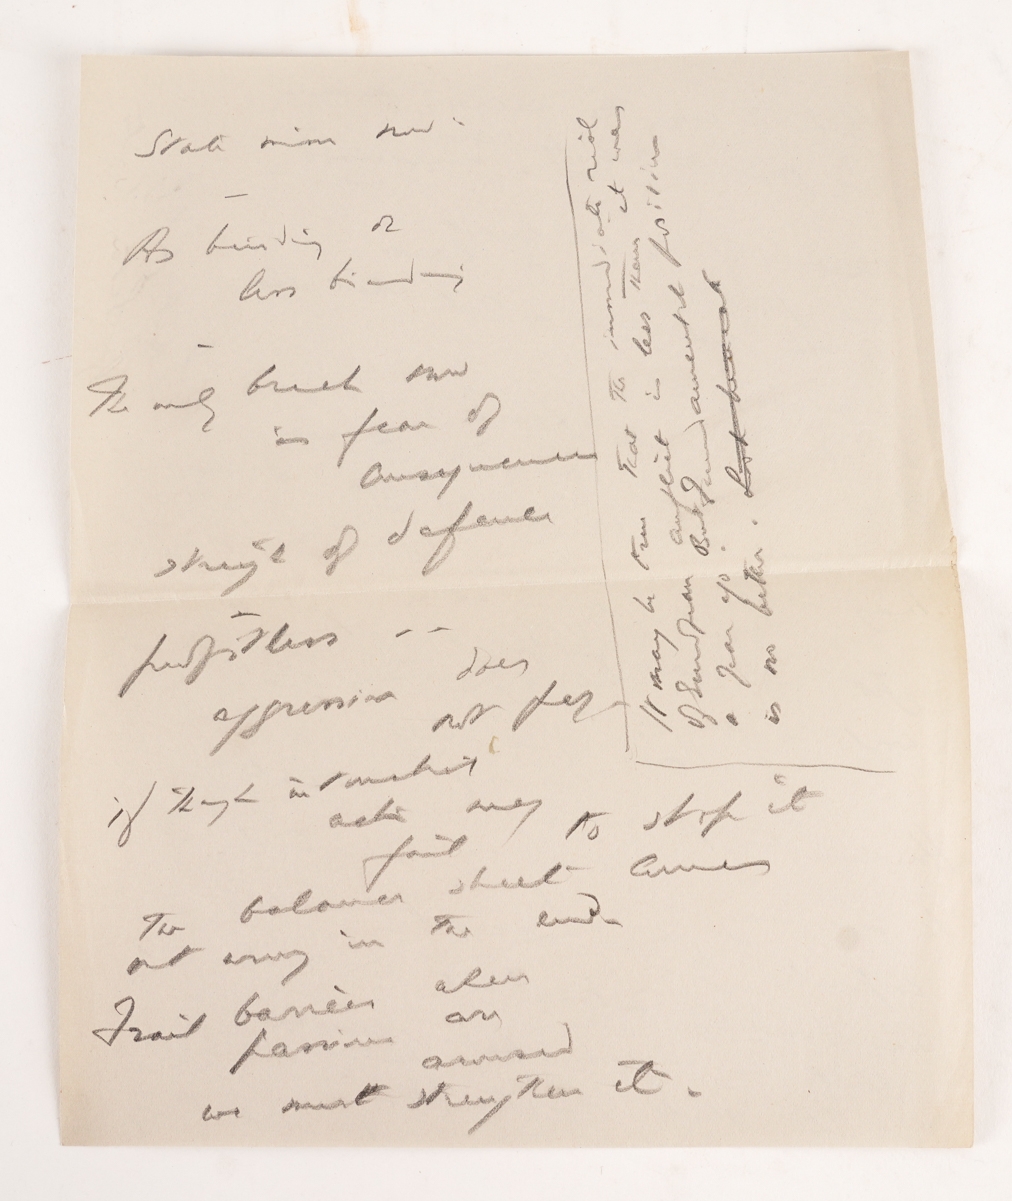 State mind now
As binding or
less binding
The only breach now
is fear of
consequences
strength of defence
profitless --
aggression does
not pay
if though intermediate
action may
fail to stop it
The balance sheet comes
out wrong in the end
Frail barrier when
passions are
aroused
we must strengthen it.
It may be true that the immediate risk
of European conflict is less than it was
a year ago. But fundamental position
is no better.